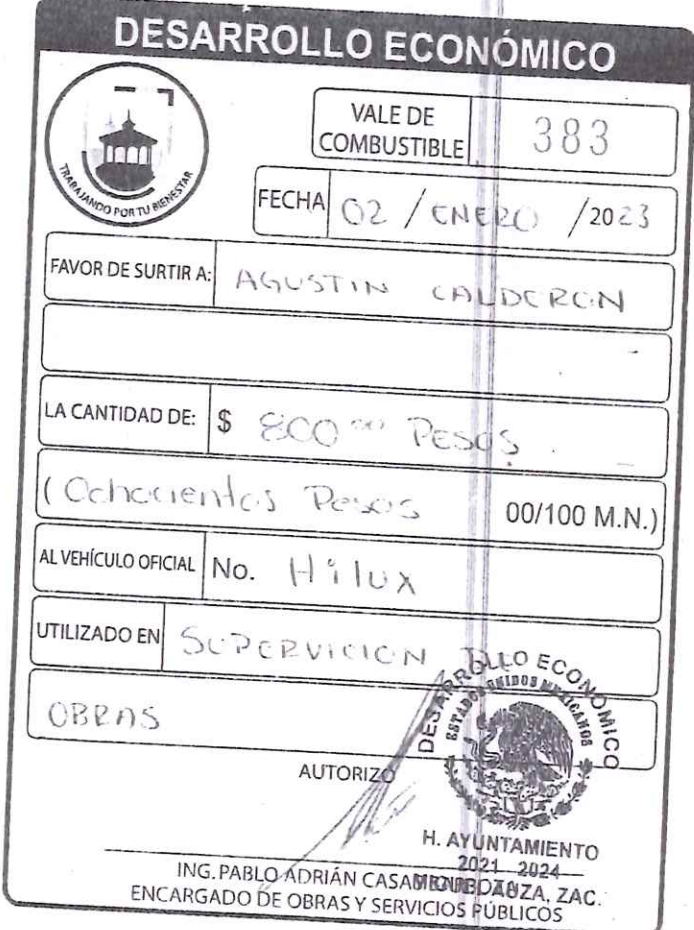 DESARROLLO ECONÓMICO
TRABAJANDO POR TU BIENESTAR
VALE DE COMBUSTIBLE 383
FECHA 02 / ENERO / 2023
FAVOR DE SURTIR A: AGUSTIN CALDERON
LA CANTIDAD DE: $ 800 00 PESOS
(Ochocientos Pesos 00/100 M.N.)
AL VEHÍCULO OFICIAL No. Hilux
UTILIZADO EN SUPERVICION
OBRAS
DESARROLLO ECONOMICO
ESTADOS UNIDOS MEXICANOS
AUTORIZÓ
H. AYUNTAMIENTO
2021 2024
ING. PABLO ADRIÁN
ZAC.
ENCARGADO DE OBRAS Y SERVICIOS PÚBLICOS